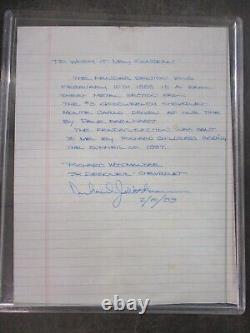 TO WHOM IT MAY CONCERN:
THE FENDER SECTION
FEBRUARY 15TH IS A REAL
SHEET METAL SECTION FROM
THE #3 GOODWRENCH CHEVROLET
MONTE CARLO DRIVEN AT ONE TIME
BY DALE EARNHARDT.
THE FENDER SECTION WAS SENT
TO ME BY RICHARD CHILDRESS RACING
THE SUMMER OF 1997.
RICHARD
CHEVROLET